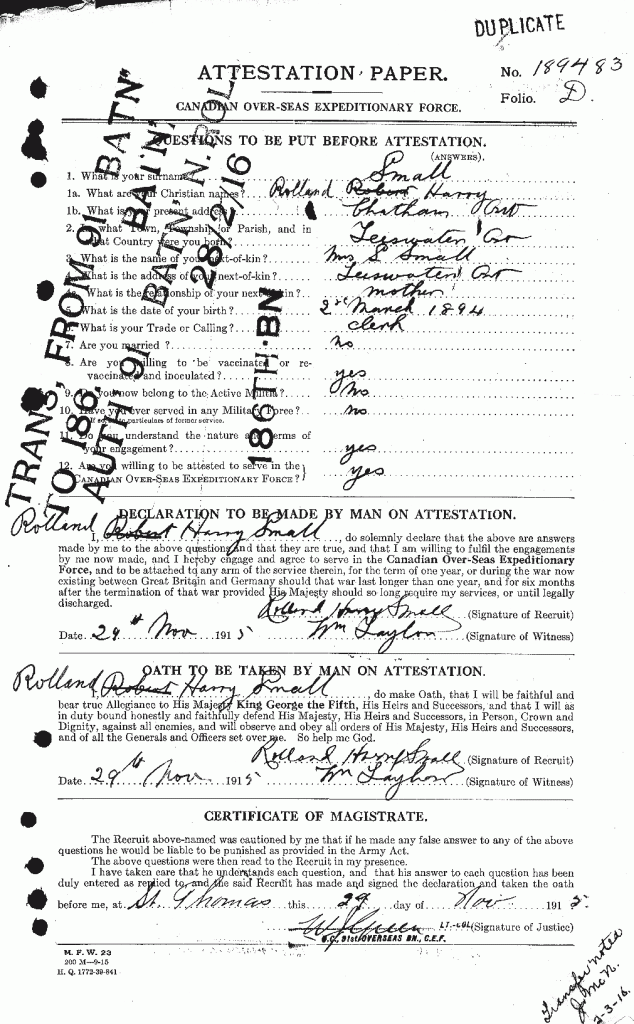 DUPLICATE
ATTESTATION PAPER.
No. 189483
Folio. D.
CANADIAN OVER-SEAS EXPEDITIONARY FORCE.
QUESTIONS TO BE PUT BEFORE ATTESTATION.
(ANSWERS).
1. What is your surname? Small
1a. What are your Christian names? Rolland Robert Harry
1b. What is your present address? Chatham Ont
2. In what Town, Township or Parish, and in
what Country were you born? Teeswater Ont
3. What is the name of your next-of-kin? Mrs S Small
4. What is the address of your next-of-kin? Teeswater Ont
4a. What is the relationship of your next-of-kin? mother
5. What is the date of your birth? 2nd March 1894
6. What is your Trade or Calling? clerk
7. Are you married? no
8. Are you willing to be vaccinated or re-
vaccinated and inoculated? yes
9. Do you now belong to the Active Militia? No
10. Have you ever served in any Military Force? no
If so, state particulars of former service.
11. Do you understand the nature and terms of
your engagement? yes
12. Are you willing to be attested to serve in the
CANADIAN OVER-SEAS EXPEDITIONARY FORCE? yes
TRANS, FROM 91 BATN'
TO 186, BATN'
AUTH 91 BATN, N. POL
28/2/16
186TH. BN
DECLARATION TO BE MADE BY MAN ON ATTESTATION.
Rolland
I, Robert Harry Small, do solemnly declare that the above are answers
made by me to the above questions and that they are true, and that I am willing to fulfil the engagements
by me now made, and I hereby engage and agree to serve in the Canadian Over-Seas Expeditionary
Force, and to be attached to any arm of the service therein, for the term of one year, or during the war now
existing between Great Britain and Germany should that war last longer than one year, and for six months
after the termination of that war provided His Majesty should so long require my services, or until legally
discharged.
Rolland Harry Small (Signature of Recruit)
Date 29th Nov 1915 Wm Taylor (Signature of Witness)
OATH TO BE TAKEN BY MAN ON ATTESTATION.
Rolland
I, Robert Harry Small, do make Oath, that I will be faithful and
bear true Allegiance to His Majesty King George the Fifth, His Heirs and Successors, and that I will as
in duty bound honestly and faithfully defend His Majesty, His Heirs and Successors, in Person, Crown and
Dignity, against all enemies, and will observe and obey all orders of His Majesty, His Heirs and Successors,
and of all the Generals and Officers set over me. So help me God.
Rolland Harry Small (Signature of Recruit)
Date 29th Nov 1915 Wm Taylor (Signature of Witness)
CERTIFICATE OF MAGISTRATE.
The Recruit above-named was cautioned by me that if he made any false answer to any of the above
questions he would be liable to be punished as provided in the Army Act.
The above questions were then read to the Recruit in my presence.
I have taken care that he understands each question, and that his answer to each question has been
duly entered as replied to, and the said Recruit has made and signed the declaration and taken the oath
before me, at St. Thomas this 29 day of Nov 1915.
W J Green LT-COL (Signature of Justice)
O.C. 91st OVERSEAS BN., C.E.F.
M. F. W. 23
200 M—9-15
H. Q. 1772-39-841
Transfer noted
J. McN.
2-3-16.